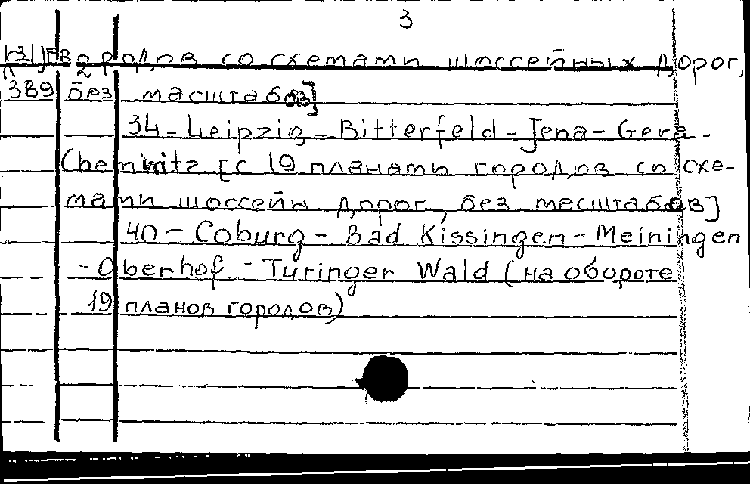 3
городов со схемами шоссейных дорог,
389 без масштабов]
34 - Leipzig - Bitterfeld - Jena - Gera -
Chemnitz [с 19 планами городов со схе-
мами шоссейн дорог, без месштабов]
40 - Coburg - Bad Kissingen - Meiningen
- Oberhof - Turinger Wald (на обороте
19 планов городов)